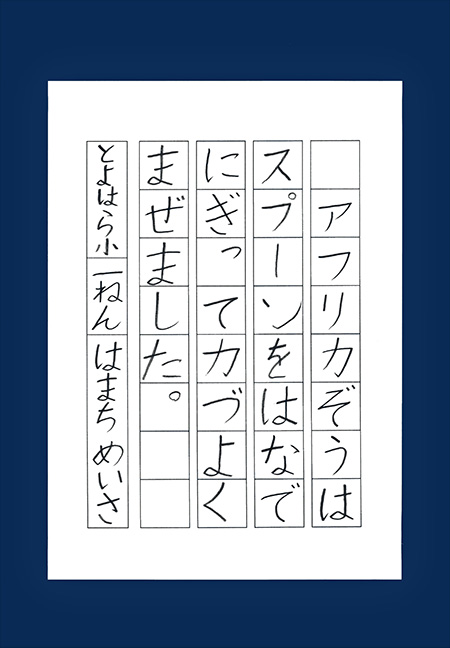 アフリカぞうは
スプーンをはなで
にぎってカづよく
まぜました。
とよはら小 一ねん はまち めいさ